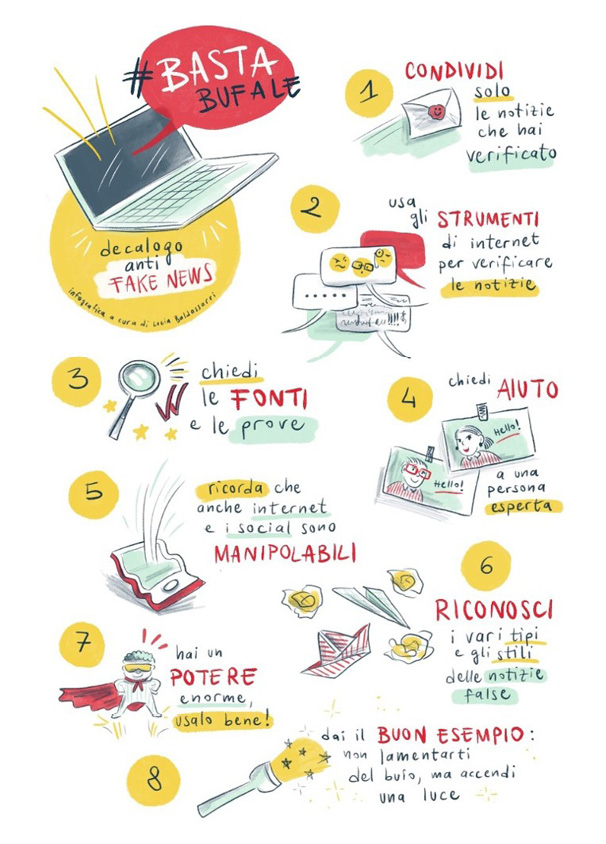 #BASTA
BUFALE
decalogo
anti
FAKE NEWS
infografica a cura di Lucia Baldassarri
1
CONDIVIDI
solo
le notizie
che hai
verificato
2
usa
gli STRUMENTI
di internet
per verificare
le notizie
3
chiedi
le FONTI
e le prove
4
chiedi AIUTO
Hello!
Hello!
a una
persona
esperta
5
ricorda che
anche internet
e i social sono
MANIPOLABILI
6
RICONOSCI
i vari tipi
e gli stili
delle notizie
false
7
hai un
POTERE
enorme,
usalo bene!
8
dai il BUON ESEMPIO:
non lamentarti
del buio, ma accendi
una luce